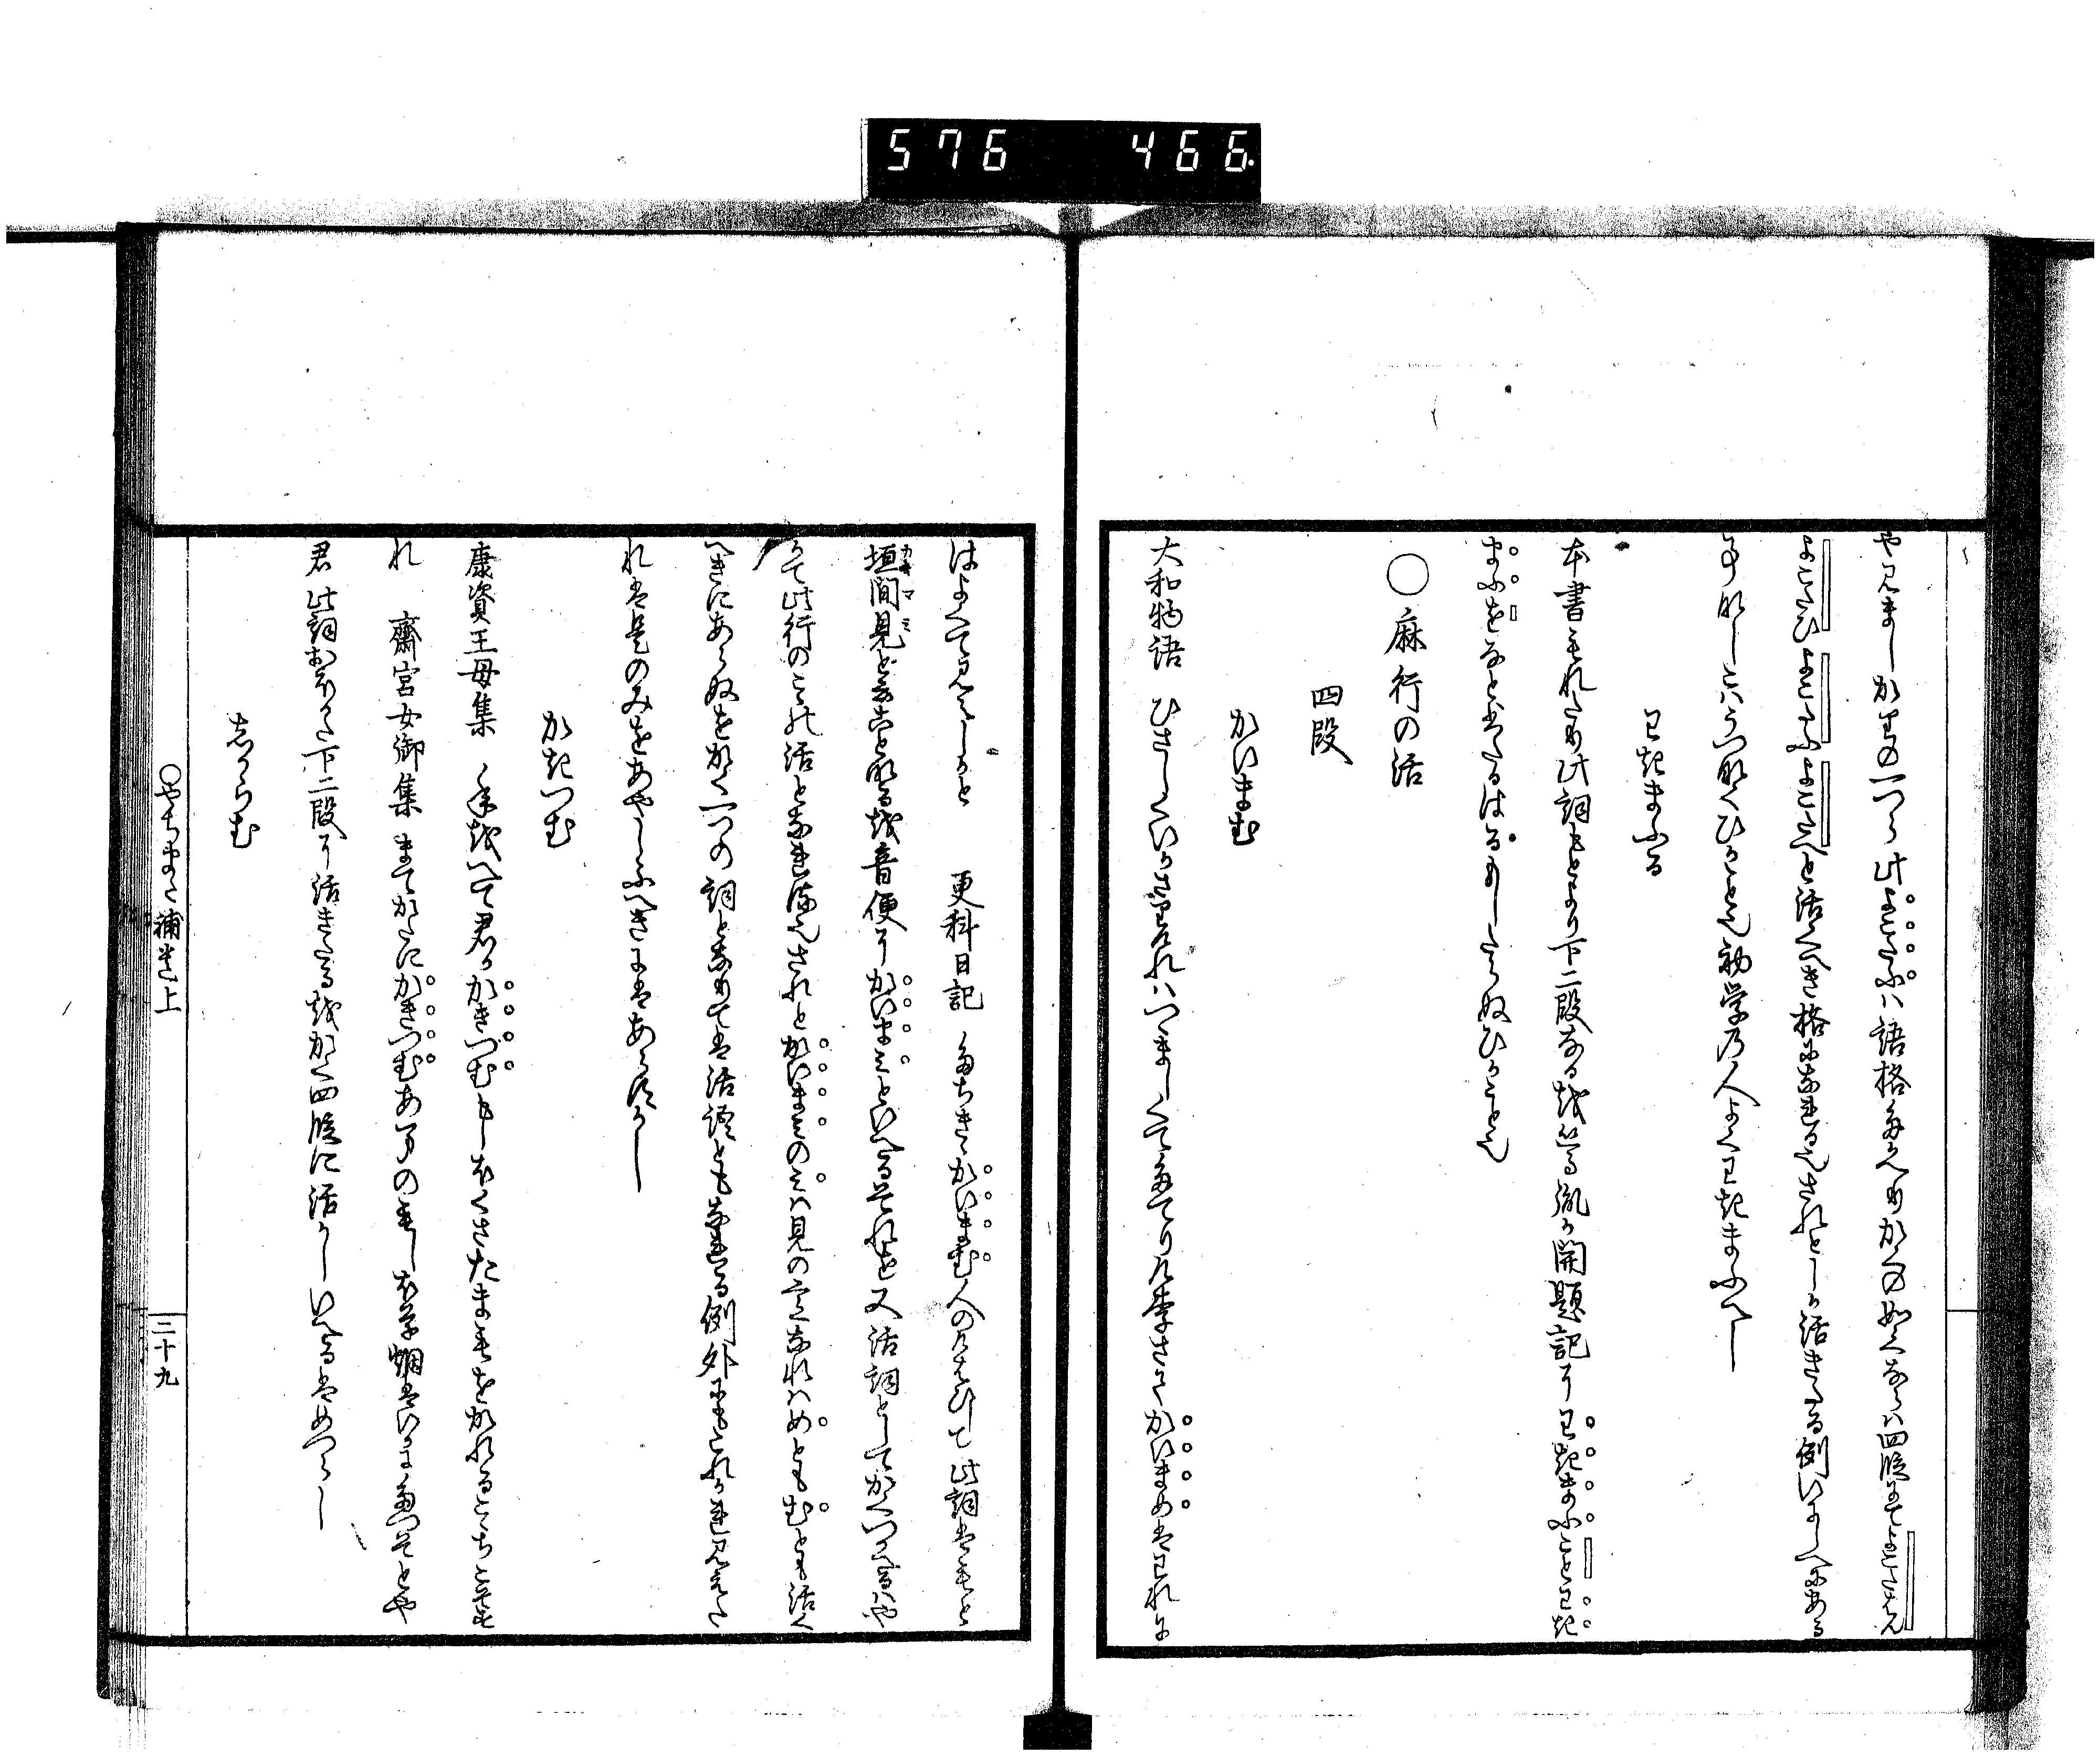 576 466.
やみましかすの一つら此よこたふハ語格たかへりかくの如くならハ四段にてよこたはん
よこたひよこたふよこたへと活くへき格になれる也されとしか活きたる例いにしへにある
事なしこハうつなくひかこと也初学の人よくわきまふへし
わきまふる
本書もれたり此詞もとより下二段なるを篤胤か開題記にわきまふことわき
まふをなとあるはるもしたらぬひかこと也
○麻行の活
四段
かいまむ
大和物語 ひさしくいかさりけれハつましくてたてりけ李さてかいまめはわれに
はよくて見えしかと 更科日記 たちきゝかいまむ人のけはひして 此詞はもと
垣間見と云ことなるを音便にかいまみといへるそれを又活詞としてかくつかへるハや
かて此行のこゝの活となれる也されとかいまみのみハ見の意なれハめともむとも活く
へきにあらぬをかく一つの詞となりては活語ともなれる例外にもこれかれ見えた
れは是のみをあやしふへきにはあらすかし
かきつむ
康資王母集 年をへて君かかきつむもしほくさたまもをかれるこゝちこそすれ
れ 齋宮女御集 まてかたにかきつむあまのもしほ草烟はいかにたつそとや
君 此詞おほかた下二段に活きたるをかく四段に活かしいへるはめつらし
しからむ
○やちまた補遺上
三十九